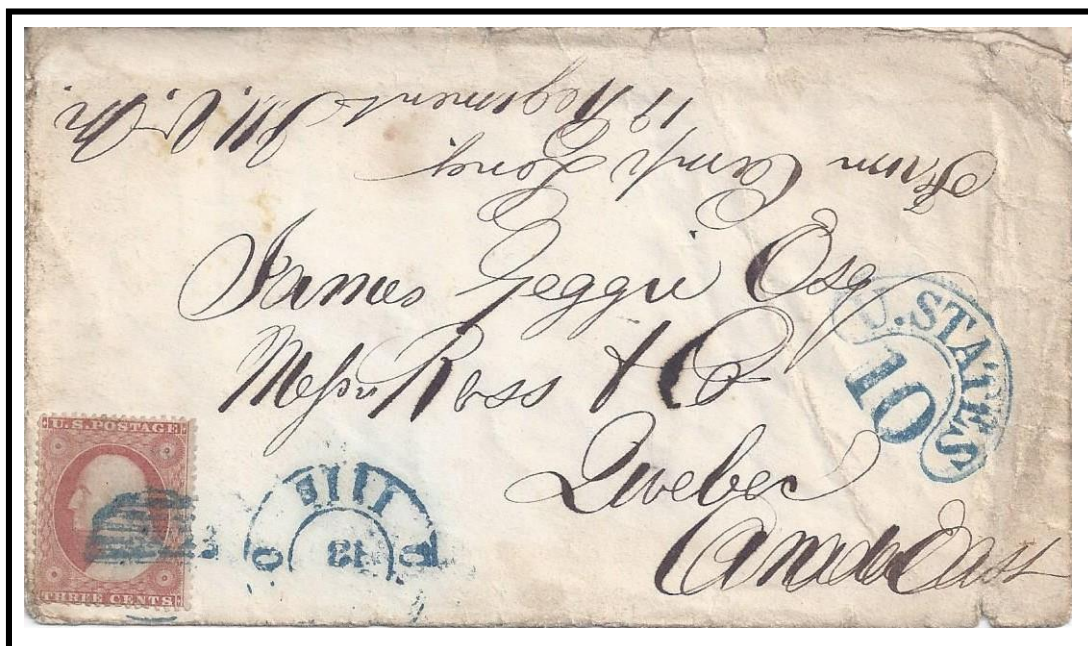 From Camp
Regiment
James Geggie Esq
Messrs Ross & Co
Quebec
Canada East
U. STATES
10
U.S. POSTAGE
THREE CENTS